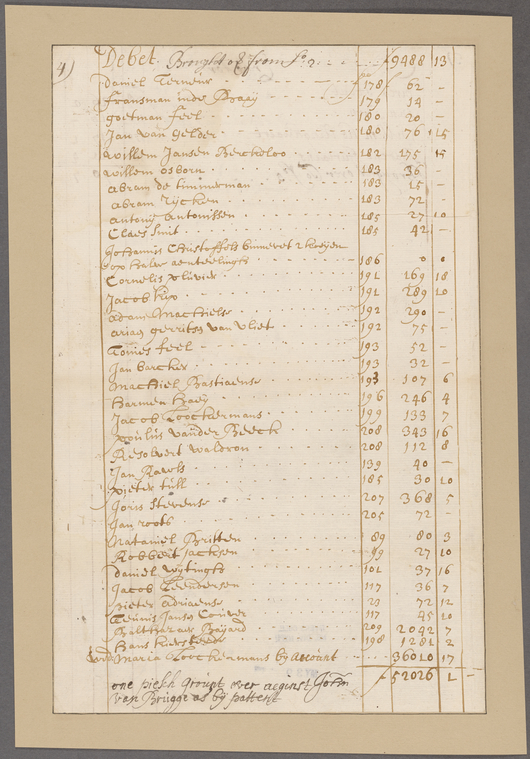 4) Debet. Brought of from fo 2. 9488 13
Daniel Terneur fo 178 62 –
Fransman inde Braay 179 14 –
goetman feel 180 20 –
Jan van Gelder 180 76 15
Willem Jansen Berckeloo 182 175 15
Willem osborn 183 36 –
Abram de timmerman 183 15 –
Abram Rijcken 183 72 –
Antonij Antonissen 185 27 10
Claes Smit 185 42 –
Johannis Christoffels
op halve aenteelingh 186 0 0
Cornelis pluvier 191 169 18
Jacob Kip 191 289 10
Adame Machielse 192 290 –
Ariaen gerritsen van vliet 192 75 –
Tomes feel 193 52 –
Jan barcker 193 32 –
Machiel Bastiaense 193 107 6
Harmen Raey 196 246 4
Jacob Loockermans 199 133 7
poulus vander Beeck 208 343 16
Resolvert Waldron 208 112 8
Jan Rawls 139 40 –
pieter tull 185 30 10
Joris Stevense 207 368 5
Jan roots 205 72 –
Nataniel Britten 89 80 3
Robbert Jacksen 99 27 10
Daniel Wijtingh 101 37 16
Jacob Leendersen 117 36 7
pieter adriaense 29 72 12
Teunis Jansen Couver 117 45 10
Balthazar Bayard 209 2042 7
Hans Kierstede 198 1281 2
Maria Loockermans by account 36010 17
52026 1 –
one piesh ground over against John
van Brugge as by pattent